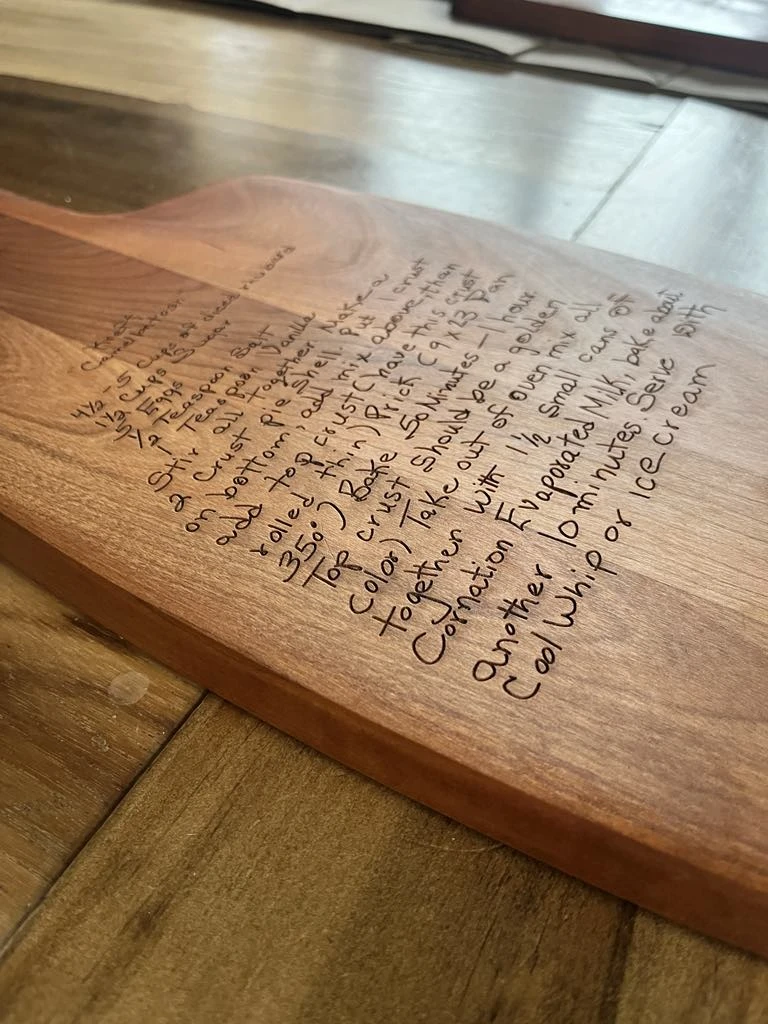 4½ - 5 Cups of diced rhubarb
1½ Cups Sugar
Eggs
Teaspoon Salt
Teaspoon Vanilla
Stir all together Make a
2 crust pie shell. Put 1 crust
on bottom, add mix above, than
add top crust (have this crust
rolled thin) Prick (9 x 23 Pan
350°) Bake 50 Minutes - 1 hour
Top crust should be a golden
color) Take out of oven mix all
together with 1½ small cans of
Cornation Evaporated Milk, bake about
another 10 minutes Serve with
Cool Whip or ice cream